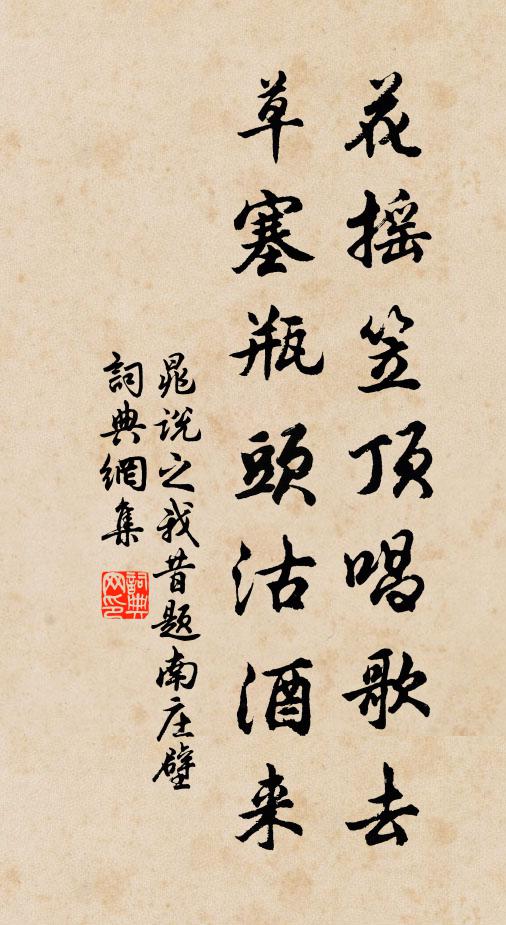 花摇笠顶唱歌去
草塞瓶頭沽酒来
晁说之我昔题南庄壁
詞典網集
詞典
网印